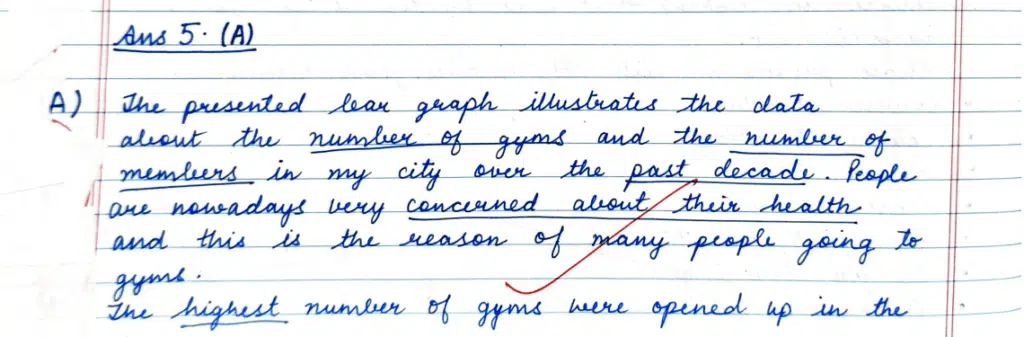 Ans 5. (A)
A) The presented bar graph illustrates the data
about the number of gyms and the number of
members in my city over the past decade. People
are nowadays very concerned about their health
and this is the reason of many people going to
gyms.
The highest number of gyms were opened up in the